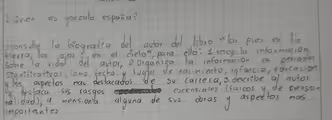 Consulte la biografía del autor del libro "los pies en la
tierra, los ojos en el cielo", para ello: 1. recoge la información
sobre la vida del autor, 2. Organiza la información en
significativos como fecha y lugar de nacimiento, infancia, educación
y los aspectos mas destacados de su carrera, 3. describe al autor
y destaca sus rasgos esenciales (físicos y de
4. menciona alguna de sus obras y aspectos mas
importantes